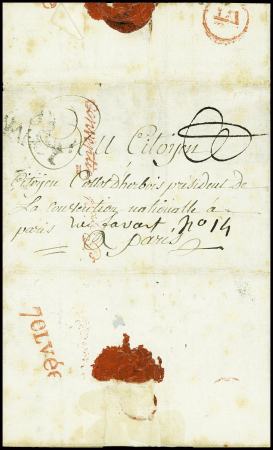 Au Citoyen
Citoyen Collot Dherbois président de
La convention nationalle à
paris rue favart n° 14
à paris
70LVÉE